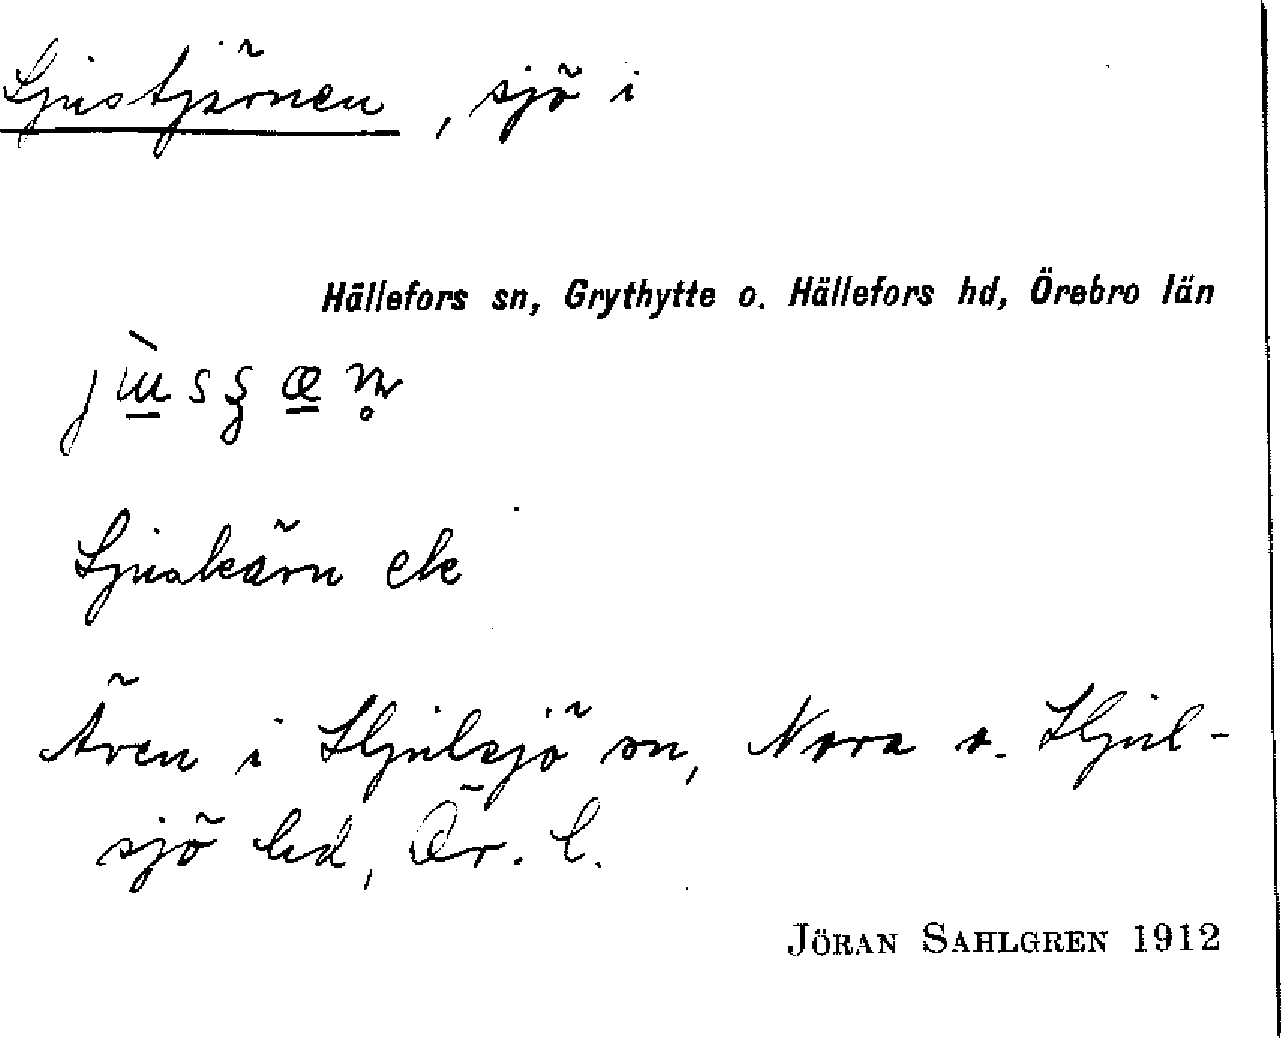 Ljustjärnen, sjö i
Hällefors sn, Grythytte o. Hällefors hd, Örebro län
Ljuskärn ek
Även i Hjulsjö sn, Nora o. Hjul-
sjö hd, Ör. l.
JÖRAN SAHLGREN 1912